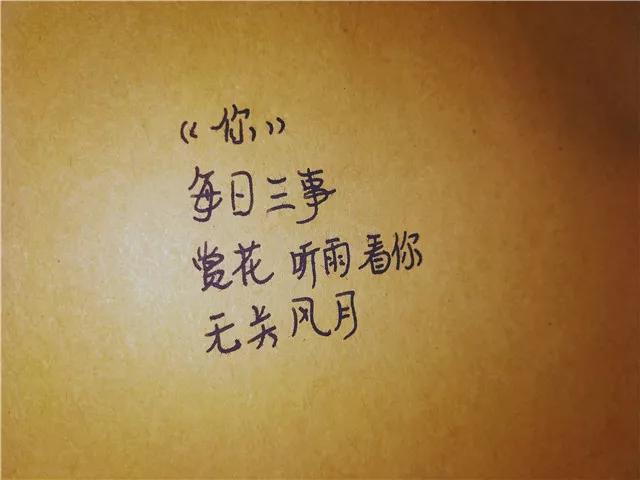 《你》
每日三事
赏花 听雨 看你
无关风月